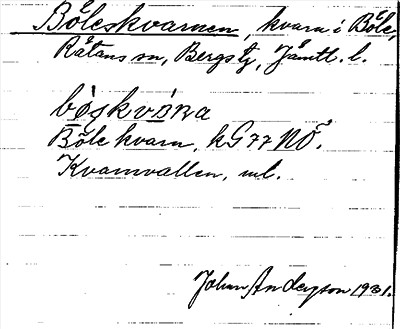 Böleskvarnen, kvarn i Böle,
Rätans sn, Bergs tg, Jämtl. l.
bøskvøṇa
Böle kvarn, kG77NÖ.
Kvarnvallen, ml.
Johan Anderzson 1931.